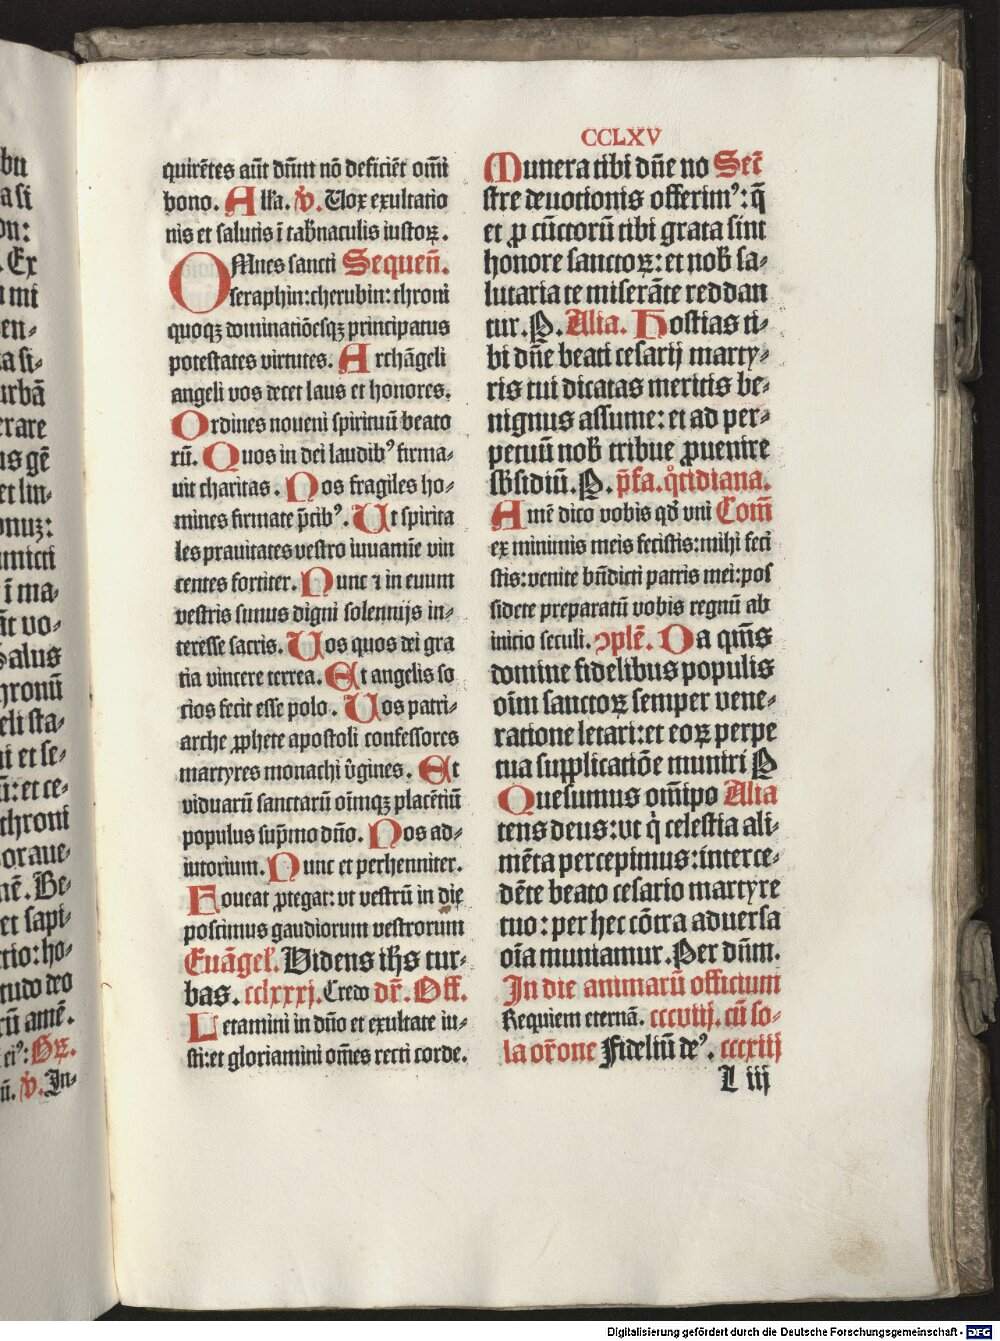 CCLXV
quirētes aūt dn̄m nō deficiēt om̄i
bono. All'a. v̓. Uox exultatio
nis et salutis ī tab'naculis iustoꝝ.
OMnes sancti Sequen̄.
seraphin:cherubin:throni
quoqꝫ dominatiōesqꝫ principatus
potestates virtutes. Archāgeli
angeli vos decet laus et honores.
Ordines noueni spirituū beato
rū. Quos in dei laudib⁹ firma-
uit charitas. Nos fragiles ho-
mines firmate p̄cib⁹. Ut spirita
les prauitates vestro iuuamīe vin
centes fortiter. Nunc ⁊ in euum
vestris simus digni solennijs in-
teresse sacris. Uos quos dei gra
tia vincere terrea. Et angelis so
cios fecit esse polo. Uos patri-
arche ꝓphete apostoli confessores
martyres monachi v̓gines. Et
viduarū sanctarū oīmqꝫ placētiū
populus sup̄mo dn̄o. Nos ad-
iutorium. Nunc et perhenniter.
Foueat ꝓtegat: vt vestrū in die
poscimus gaudiorum vestrorum
Euāgel'. Videns ih̄s tur-
bas. cclxxxj. Credo dr̄. Off.
Letamini in dn̄o et exultate iu-
sti:et gloriamini om̄es recti corde.
Munera tibi dn̄e no Secr̄
stre deuotionis offerim⁹: q̄
et ꝓ cūctorū tibi grata sint
honore sanctoꝝ: et nob̄ sa-
lutaria te miserāte reddan
tur. P. Alia. Hostias ti-
bi dn̄e beati cesarij marty-
ris tui dicatas meritis be-
nignus assume: et ad per-
petuū nob̄ tribue ꝓuenire
sb̄sidiū. P. p̄fa. q̊tidiana.
Amē dico vobis qd̓ vni Com̄
ex minimis meis fecistis:mihi feci
stis:venite bn̄dicti patris mei:pos
sidete preparatū vobis regnū ab
inicio seculi. ꝯplē. Da qm̄s
domine fidelibus populis
oīm sanctoꝝ semper vene-
ratione letari:et eoꝝ perpe
tua supplicatiōe muniri P
Quesumus om̄ipo Alia
tens deus: vt q̇ celestia ali-
mēta percepimus:interce-
dēte beato cesario martyre
tuo: per hec cōtra aduersa
oīa muniamur. Per dn̄m.
In die animarū officium
Requiem eternā. cccviij. cū so-
la or̄one Fideliū de⁹. cccxiij
L iij
Digitalisierung gefördert durch die Deutsche Forschungsgemeinschaft - DFG